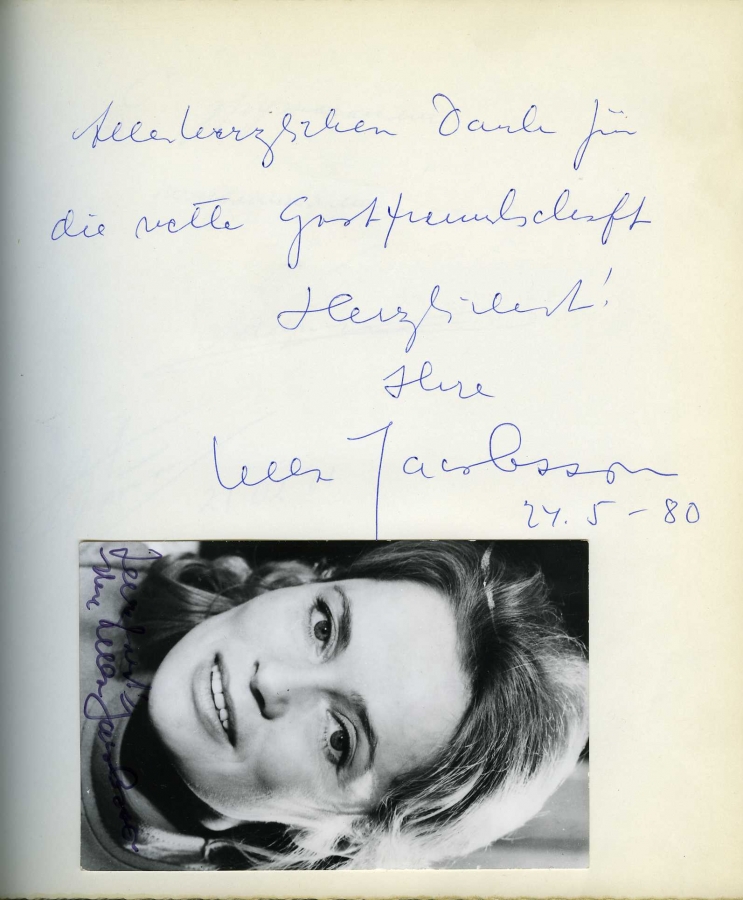 Allerherzlichen Dank für
die nette Gastfreundschaft
Herzlichst!
Ihre
Ulla Jacobsson
24.5-80
Herzlichst
Ihre Ulla Jacobsson